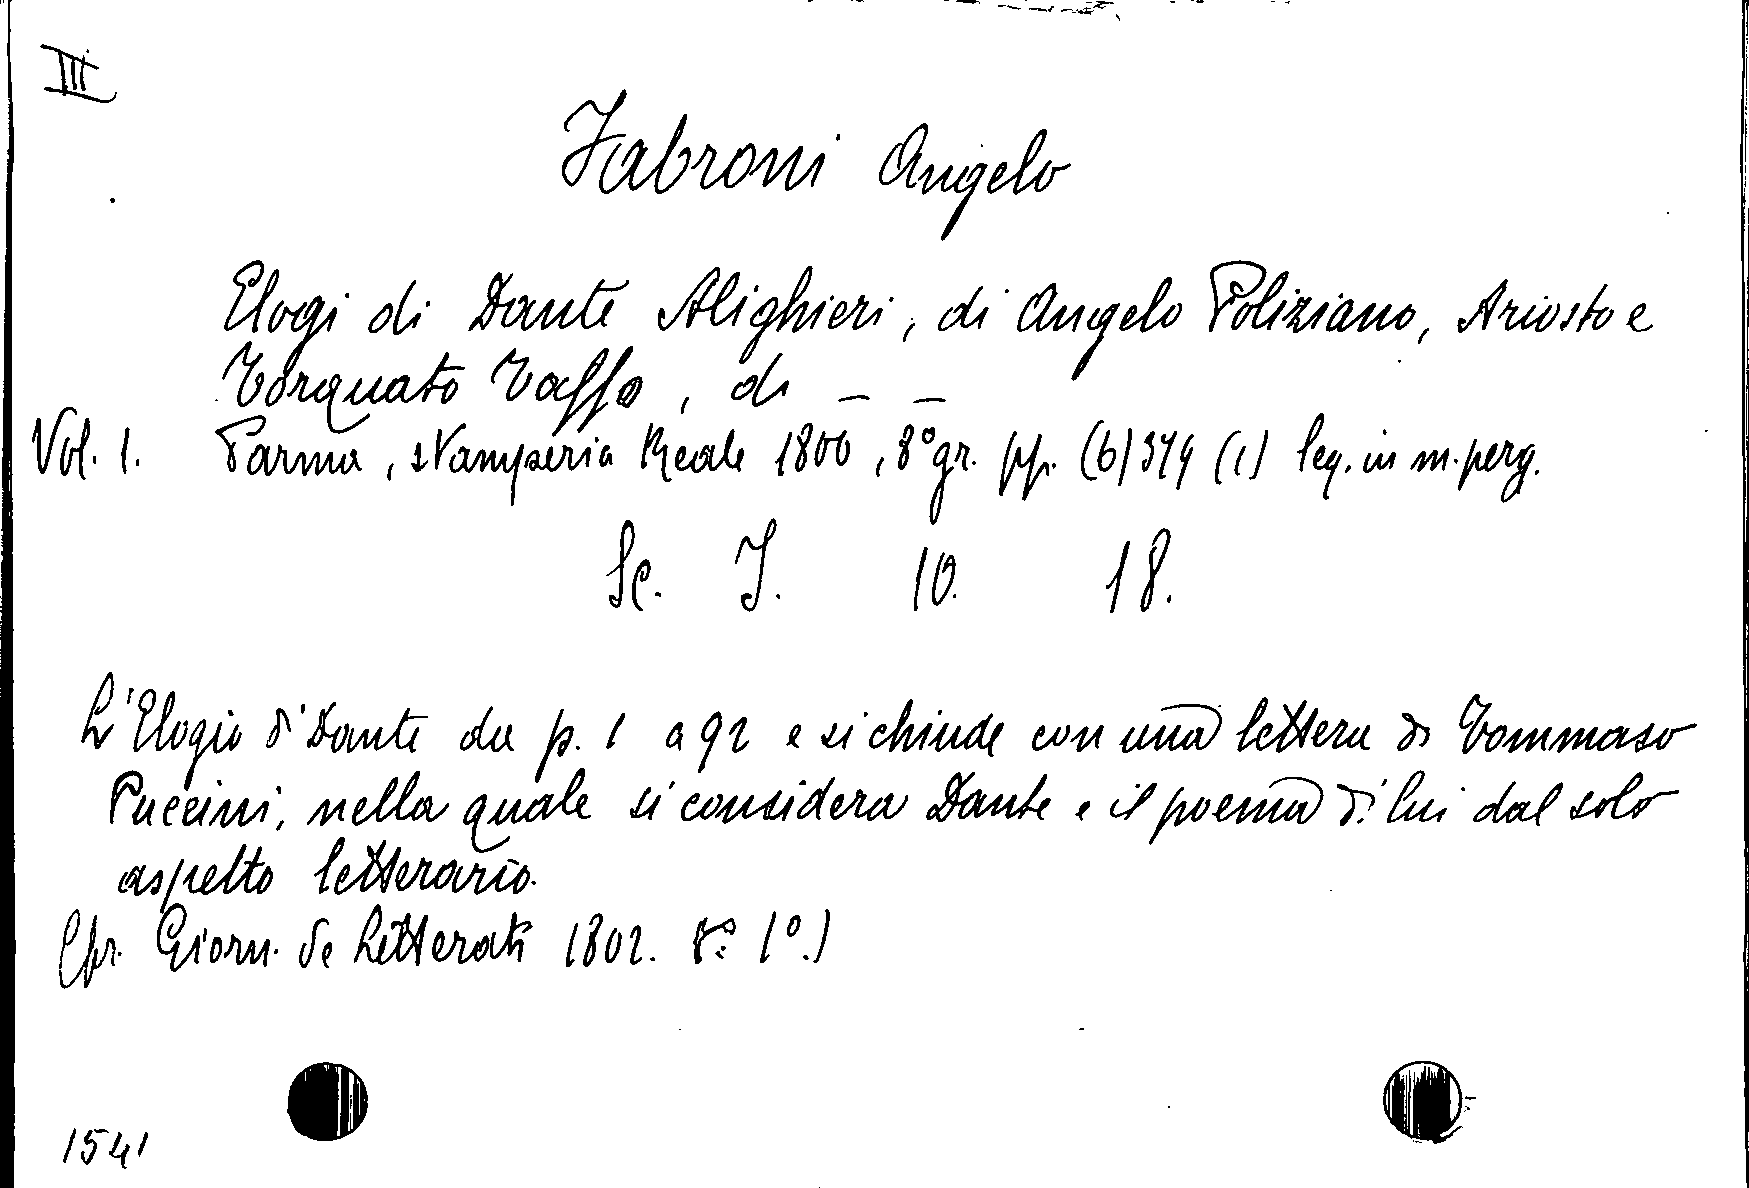 III
Fabroni Angelo
Elogi di Dante Alighieri, di Angelo Poliziano, Ariosto e
Torquato Tasso, di _ _
Vol. 1. Parma, stamperia Reale 1800, 8° gr. pp. (6) 374 (1) leg. in m. perg.
Sc. I. 10. 18.
L'Elogio di Dante da p. 1 a 92 e si chiude con una lettera di Tommaso
Puccini, nella quale si considera Dante e il poema di lui dal solo
aspetto letterario.
Cfr. Giorn. de Letterati 1802. 1°.)
1541